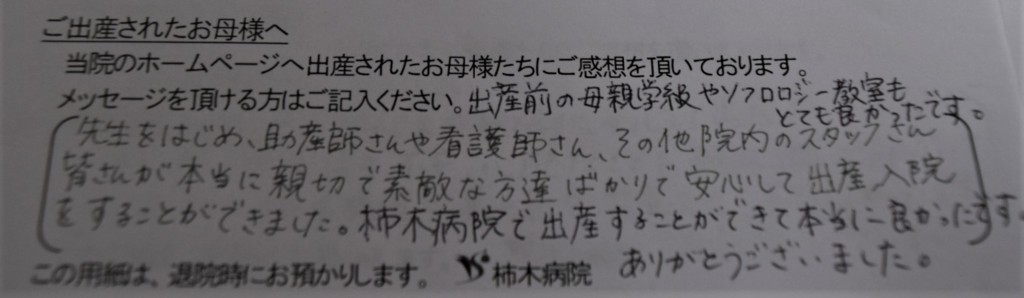 ご出産されたお母様へ
当院のホームページへ出産されたお母様たちにご感想を頂いております。
メッセージを頂ける方はご記入ください。出産前の母親学級やソフロロジー教室も
とても良かったです。
先生をはじめ、助産師さんや看護師さん、その他院内のスタッフさん
皆さんが本当に親切で素敵な方達ばかりで安心して出産、入院
をすることができました。柿木病院で出産することができて本当に良かったです。
ありがとうございました。
この用紙は、退院時にお預かりします。 柿木病院